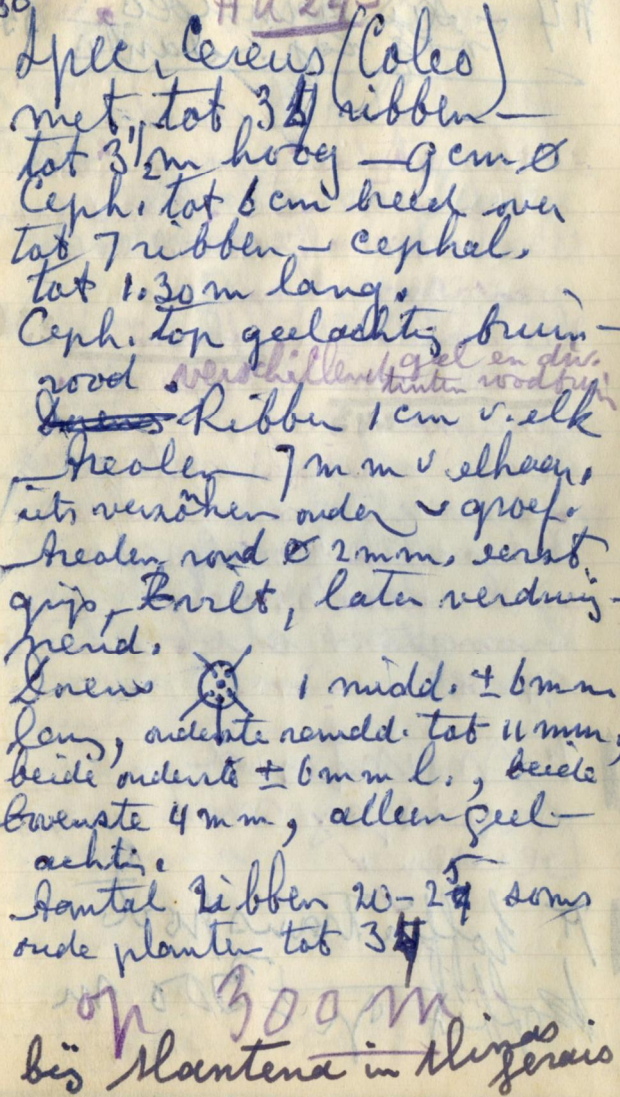 30 HU 245
Spec. Cereus (Coleo)
met tot 34 ribben —
tot 3 1/2 m hoog — 9 cm Ø
Ceph. tot 6 cm breed over
tot 7 ribben — cephal.
tot 1.30 m lang.
Ceph. top geelachtig bruin-
rood. verschillend, geel en div.
tinten roodbruin
Dorens Ribben 1 cm v. elk
Areolen 7 mm v elkaar,
iets verzonken onder v groef.
Areolen rond Ø 2 mm, eerst
grijs, vilt, later verdwij-
nend.
Dorens 1 midd. ± 6 mm
lang, onderste randd. tot 11 mm,
beide onderste ± 6 mm l., beide
bovenste 4 mm, allen geel-
achtig.
Aantal ribben 20-25 soms
oude planten tot 34
op 300 m
bij Mantena in Minas
Gerais